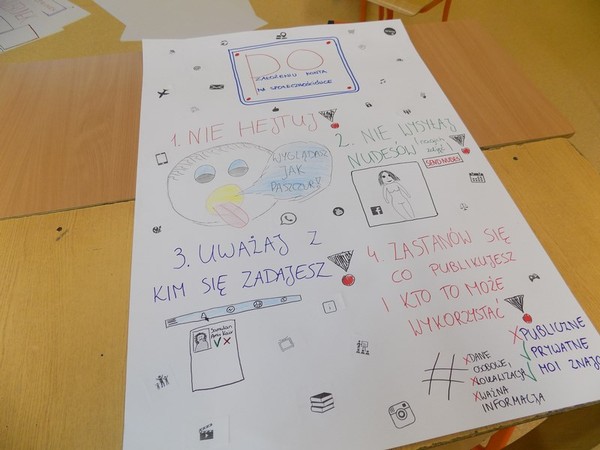 PO
ZAŁOŻENIU KONTA
NA SPOŁECZNOŚCIÓWCE
1. NIE HEJTUJ
WYGLĄDASZ
JAK
PASZCZUR!
2. NIE WYSYŁAJ
NUDESÓW
SEND NUDES
3. UWAŻAJ Z
KIM SIĘ ZADAJESZ
4. ZASTANÓW SIĘ
CO PUBLIKUJESZ
I KTO TO MOŻE
WYKORZYSTAĆ
X PUBLICZNE
✓ PRYWATNE
✓ MOI ZNAJO
# X DANE
OSOBOWE,
X LOKALIZACJA
X WAŻNA
INFORMACJA